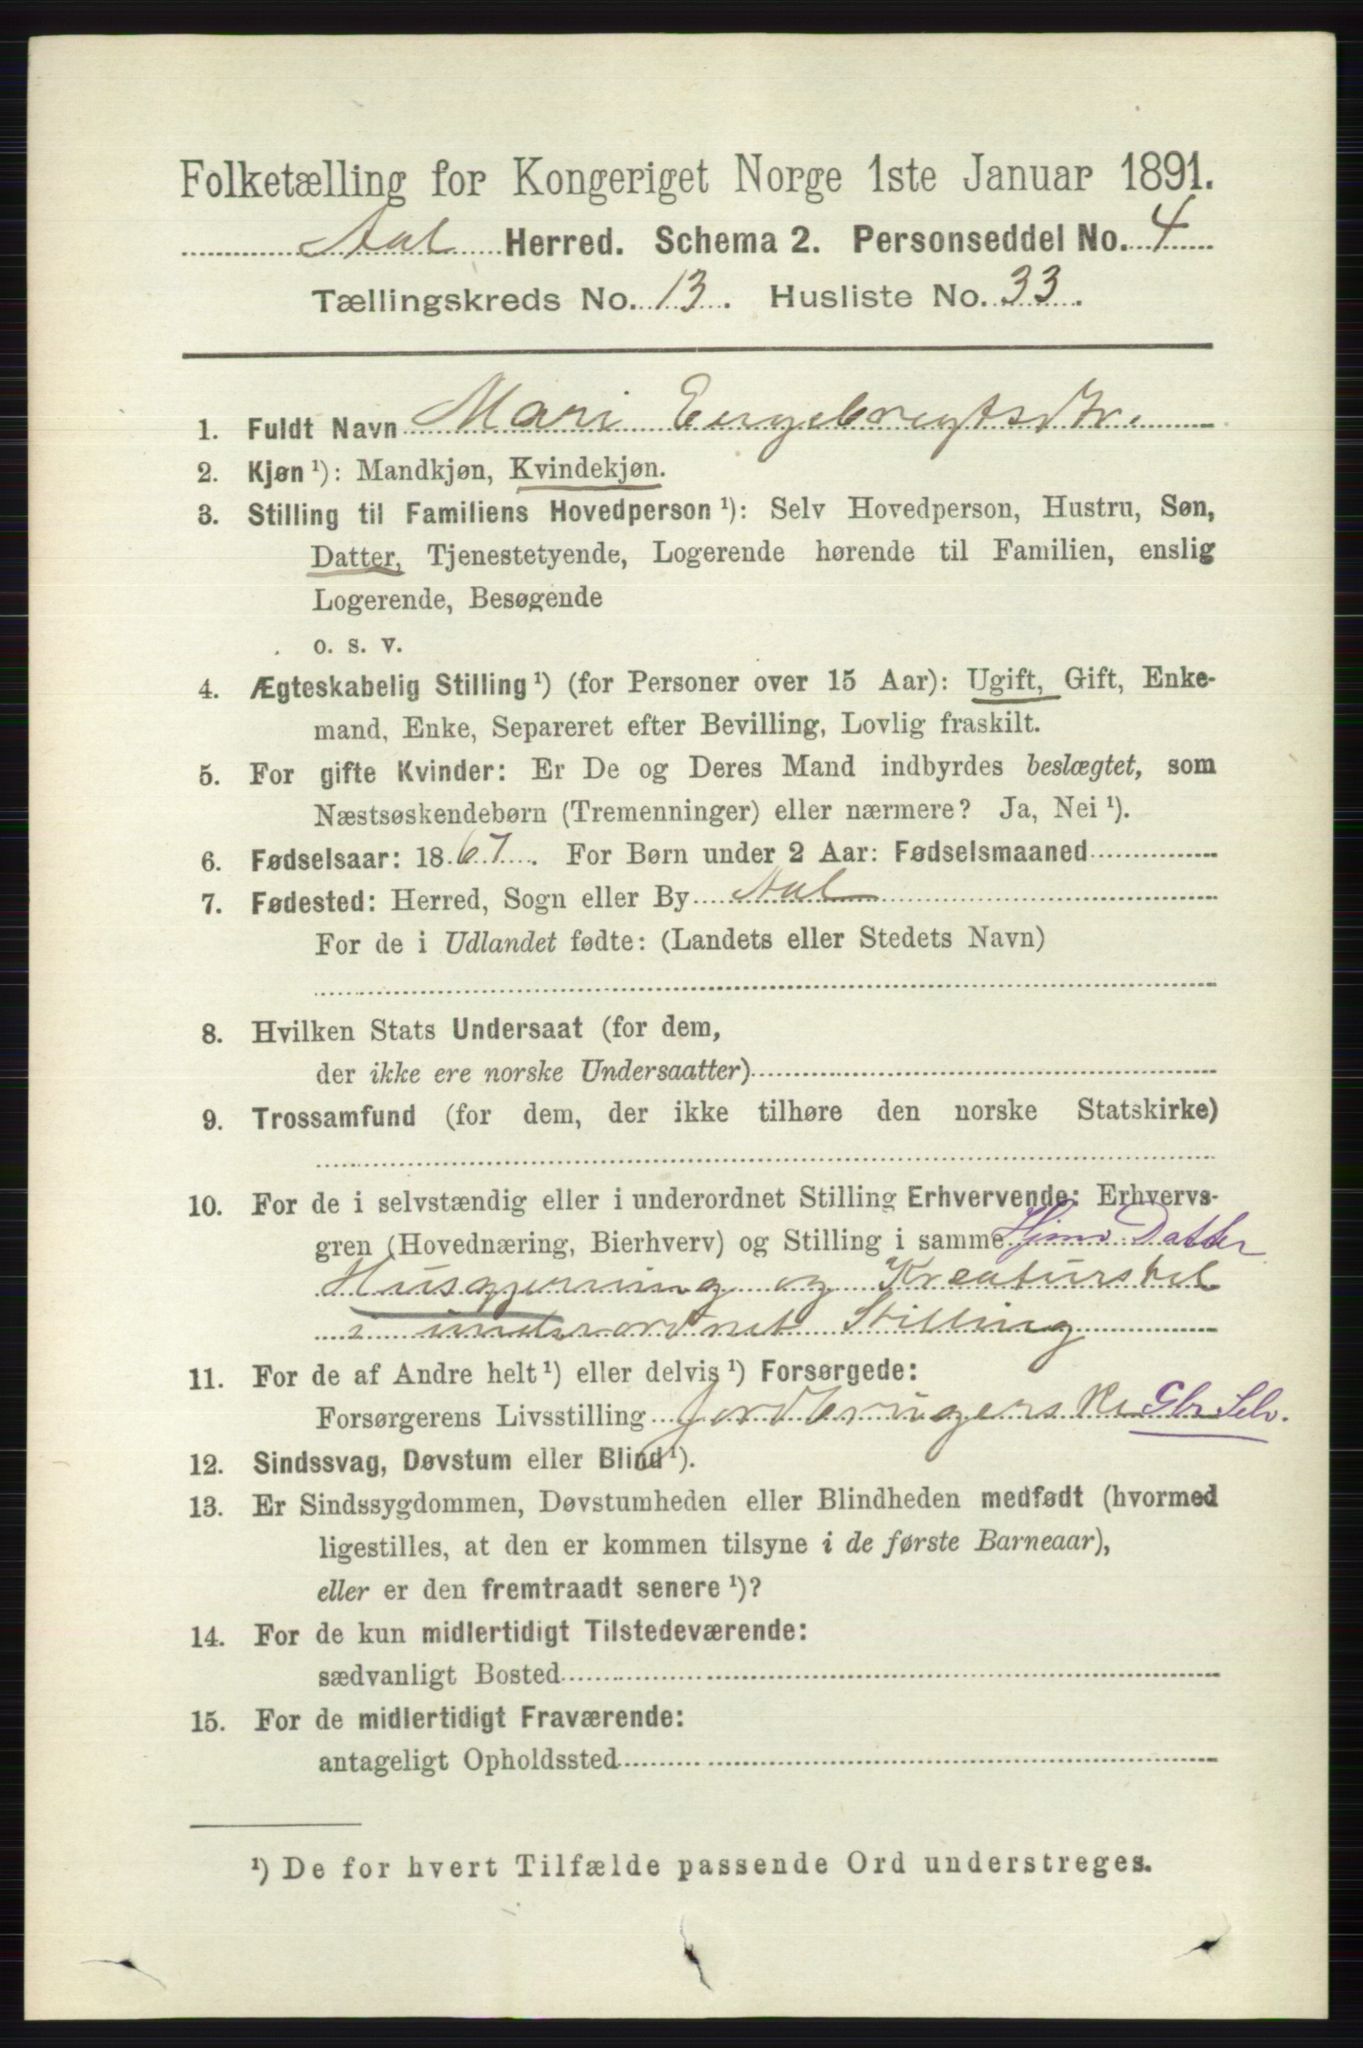 Folketælling for Kongeriget Norge 1ste Januar 1891.
Aal Herred. Schema 2. Personseddel No. 4
Tællingskreds No. 13. Husliste No. 33.
1. Fuldt Navn Mari Engebregtsdtr.
2. Kjøn ¹): Mandkjøn, Kvindekjøn.
3. Stilling til Familiens Hovedperson ¹): Selv Hovedperson, Hustru, Søn,
Datter, Tjenestetyende, Logerende hørende til Familien, enslig
Logerende, Besøgende
o. s. v.
4. Ægteskabelig Stilling ¹) (for Personer over 15 Aar): Ugift, Gift, Enke-
mand, Enke, Separeret efter Bevilling, Lovlig fraskilt.
5. For gifte Kvinder: Er De og Deres Mand indbyrdes beslægtet, som
Næstsøskendebørn (Tremenninger) eller nærmere? Ja, Nei ¹).
6. Fødselsaar: 1867. For Børn under 2 Aar: Fødselsmaaned
7. Fødested: Herred, Sogn eller By Aal
For de i Udlandet fødte: (Landets eller Stedets Navn)
8. Hvilken Stats Undersaat (for dem,
der ikke ere norske Undersaatter)
9. Trossamfund (for dem, der ikke tilhøre den norske Statskirke)
10. For de i selvstændig eller i underordnet Stilling Erhvervende: Erhvervs-
gren (Hovednæring, Bierhverv) og Stilling i samme Hjmv Datter
Husgjerning og Kreaturstel
i underordnet Stilling
11. For de af Andre helt ¹) eller delvis ¹) Forsørgede:
Forsørgerens Livsstilling Jordbruger Gbr Selv.
12. Sindssvag, Døvstum eller Blind ¹).
13. Er Sindssygdommen, Døvstumheden eller Blindheden medfødt (hvormed
ligestilles, at den er kommen tilsyne i de første Barneaar),
eller er den fremtraadt senere ¹)?
14. For de kun midlertidigt Tilstedeværende:
sædvanligt Bosted
15. For de midlertidigt Fraværende:
antageligt Opholdssted
¹) De for hvert Tilfælde passende Ord understreges.